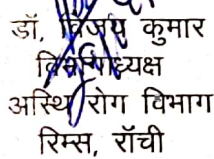 डॉ, विजय कुमार
विभागाध्यक्ष
अस्थि रोग विभाग
रिम्स, राँची